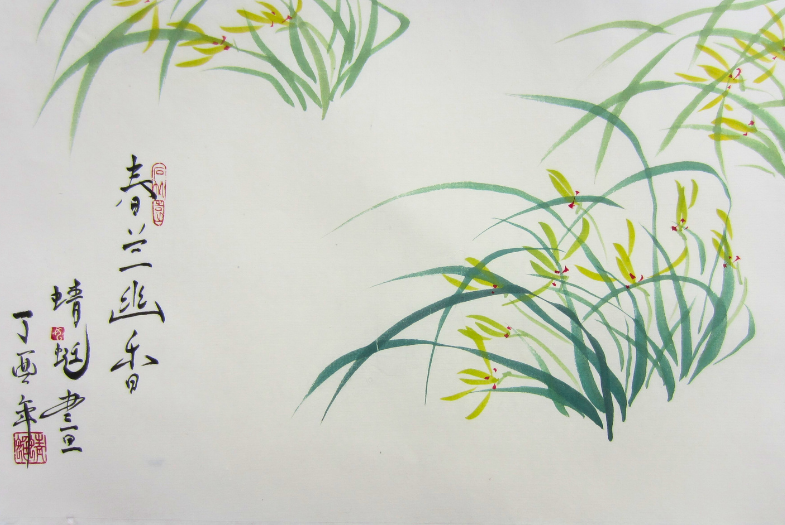 春兰幽香
蜻蜓畫
丁酉年